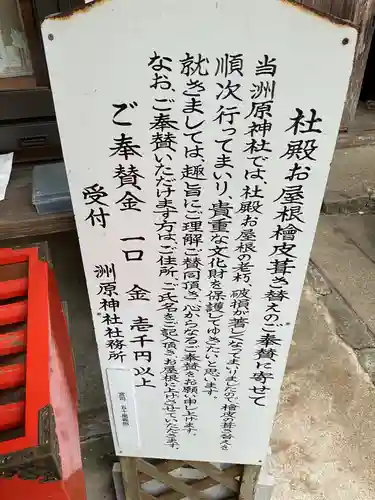 社殿お屋根檜皮葺き替えのご奉賛に寄せて
当洲原神社では、社殿お屋根の老朽、破損が著しくなってまいりましたので、檜皮の葺き替えを
順次行ってまいり、貴重な文化財を保護してゆきたいと思います。
就きましては、趣旨にご理解ご賛同頂き心からなるご奉賛をお願い申し上げます。
なお、ご奉賛いただけます方はご住所、ご氏名をご記入頂きお屋根に上げさせていただきます。
ご奉賛金 一口 金 壱千円以上
受付 洲原神社社務所